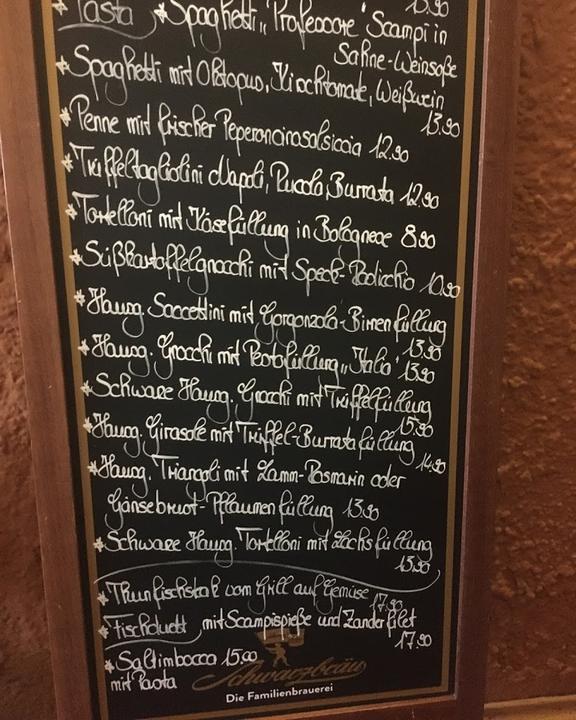 13.90
* Pasta * Spaghetti "Professore" Scampi in
Sahne-Weinsoße
* Spaghetti mit Oktopus, Kirschtomate, Weißwein
13.90
* Penne mit frischer Peperoncinosalsiccia 12.90
* Trüffeltagliolini Napoli, Rucola, Burrata 12.90
* Tortelloni mit Käsefüllung in Bolognese 8.90
* Süßkartoffelgnocchi mit Speck-Radicchio 10.90
* Hausg. Saccottini mit Gorgonzola-Birnenfüllung
13.90
* Hausg. Gnocchi mit Pestofüllung "Italia" 13.90
* Schwarze Hausg. Gnocchi mit Trüffelfüllung
15.90
* Hausg. Girasole mit Trüffel-Burratafüllung
14.90
* Hausg. Triangoli mit Lamm-Rosmarin oder
Gänsebrust-Pflaumenfüllung 13.90
* Schwarze Hausg. Tortelloni mit Lachsfüllung
13.90
* Thunfischsteak vom Grill auf Gemüse 17.90
* Fischduett mit Scampispieße und Zanderfilet
17.90
* Saltimbocca 15.00
mit Pasta
Schwarzbräu
Die Familienbrauerei